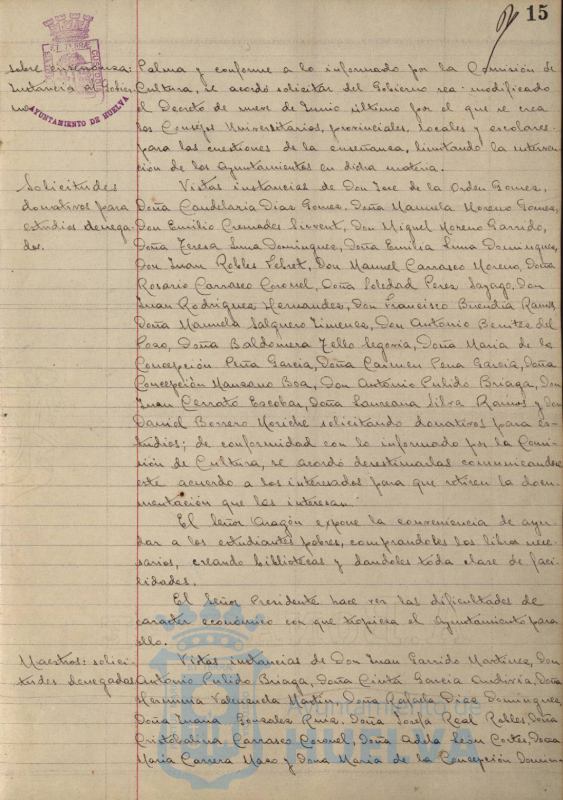 15
AYUNTAMIENTO DE HUELVA
sobre enseñanza:
Instancia al Gobier
no
Palma y conforme a lo informado por la Comisión de
Cultura, se acordó solicitar del Gobierno sea modificado
el Decreto de nueve de Junio último por el que se crea
los Consejos Universitarios, provinciales, locales y escolares
para las cuestiones de la enseñanza, limitando la interven
ción de los Ayuntamientos en dicha materia.
Solicitudes
donativos para
estudios denega-
dos.
Vistas instancias de Don Jose de la Orden Gomez,
Doña Candelaria Diaz Gomez, Doña Manuela Moreno Gomez,
Don Emilio Cremades Sirvent, Don Miguel Moreno Garrido,
Doña Teresa Luna Dominguez, Doña Emilia Luna Dominguez,
Don Juan Robles Lebret, Don Manuel Carrasco Moreno, Doña
Rosario Carrasco Coronel, Doña Soledad Perez Sayago, Don
Juan Rodriguez Hernandez, Don Francisco Buendia Ramos
Doña Manuela Salguero Jimenez, Don Antonio Benitez del
Pozo, Doña Baldomera Tello Segovia, Doña Maria de la
Concepción Peña Garcia, Doña Carmen Pena Garcia, Doña
Concepción Manzano Boa, Don Antonio Pulido Briaga, Don
Juan Cerrato Escobar, Doña Laureana Silva Ramos y Don
Daniel Borrero Moriche solicitando donativos para es-
tudios; de conformidad con lo informado por la Comi-
sión de Cultura, se acordó desestimarlas comunicandose
este acuerdo a los interesados para que retiren la docu-
mentación que les interesan.
El Señor Aragón expone la conveniencia de ayu-
dar a los estudiantes pobres, comprandoles los libros nece-
sarios, creando bibliotecas y dandoles toda clase de faci-
lidades.
El Señor Presidente hace ver las dificultades de
caracter económico con que tropieza el Ayuntamiento para
ello.
Maestros: solici-
tudes denegadas
Vistas instancias de Don Juan Garrido Martinez, Don
Antonio Pulido Briaga, Doña Cinta Garcia
Herminia Valenzuela Martin, Doña Rafaela Diaz Dominguez,
Doña Juana Gonzalez Ruiz, Doña Josefa Real Robles, Doña
Cristobalina Carrasco Coronel, Doña Adela Leon Cortes, Doña
Maria Carrera Mazo y Doña Maria de la Concepción Domin-
Ayuntamiento de
HUELVA